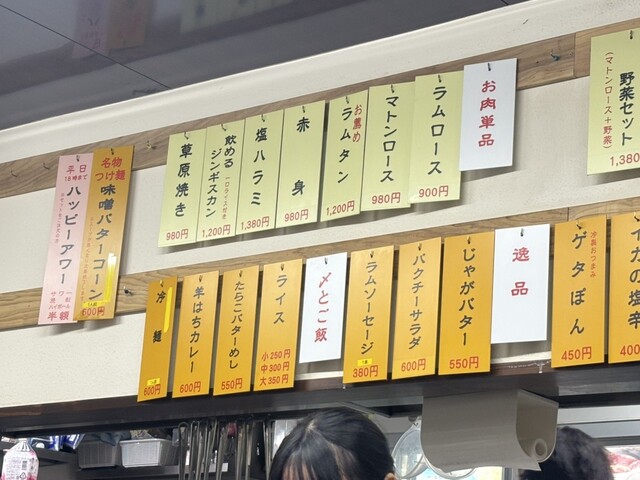 野菜セット
(マトンロース+野菜)
1,380
お肉単品
ラムロース
900円
マトンロース
980円
お薦め
ラムタン
1,200円
赤身
980円
塩ハラミ
1,380円
飲める
ジンギスカン
1,200円
草原焼き
980円
名物
つけ麺
味噌バターコーン
600円
平日
18時まで
ハッピーアワー
半額
イカの塩辛
400
冷製おつまみ
ゲタぽん
450円
逸品
じゃがバター
550円
パクチーサラダ
600円
ラムソーセージ
380円
〆とご飯
ライス
小250円
中300円
大350円
たらこバターめし
550円
羊はちカレー
600円
冷麺
600円